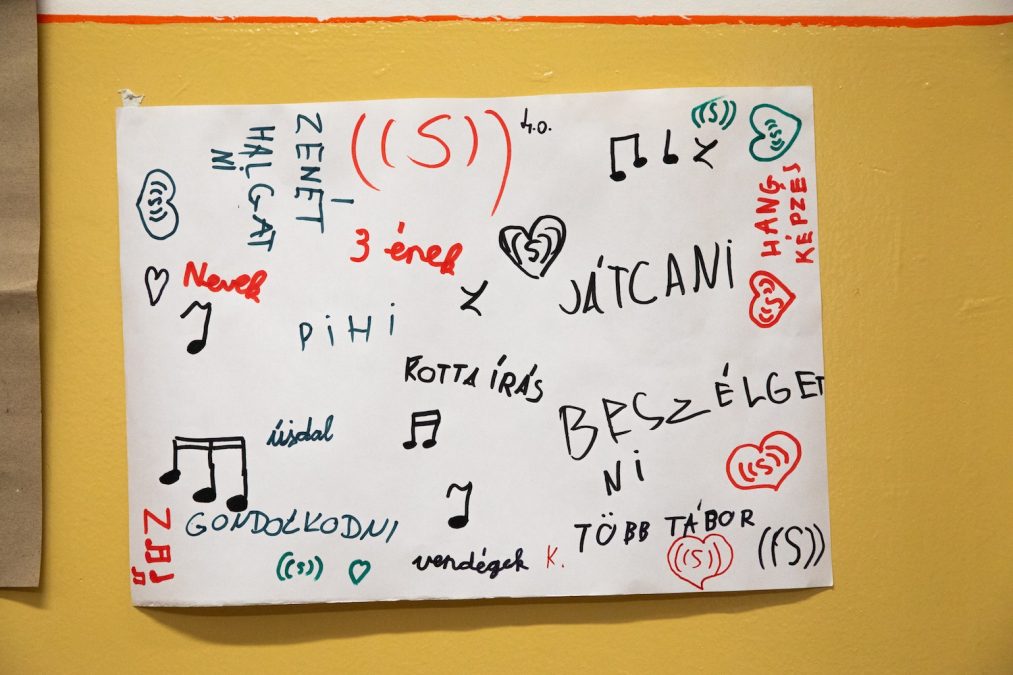 ZENÉT
HALGAT
NI
((S))
4.0.
((S))
((S))
((S))
HANG
KÉPZÉS
3 ének
((S))
JÁTCANI
Nevek
((S))
PiHi
KOTTA ÍRÁS
BESZÉLGET
Ni
újdal
((S))
GONDOLKODNI
TÖBB TÁBOR
((S))
vendégek
K.
((S))
((S))